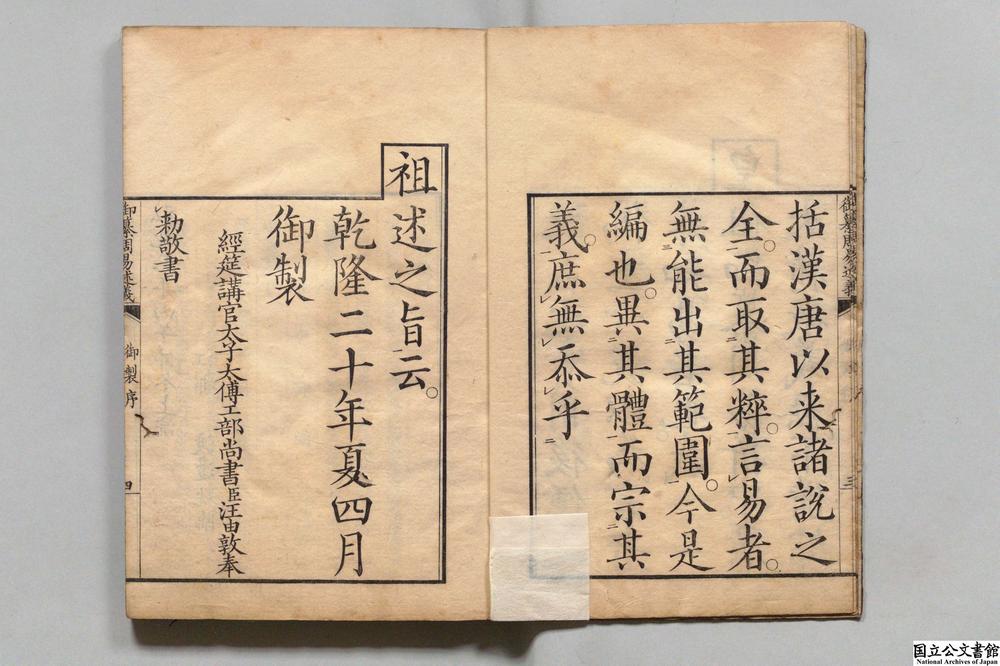 括漢唐以来諸説之
全。而取其粹。言易者。
無能出其範圍。今是
編也。異其體而宗其
義。庶無忝乎
祖述之旨云。
乾隆二十年夏四月
御製
經筵講官太子太傅工部尚書臣汪由敦奉
勅敬書
御纂周易述義
御製序
三
御纂周易述義
御製序
四
国立公文書館
National Archives of Japan